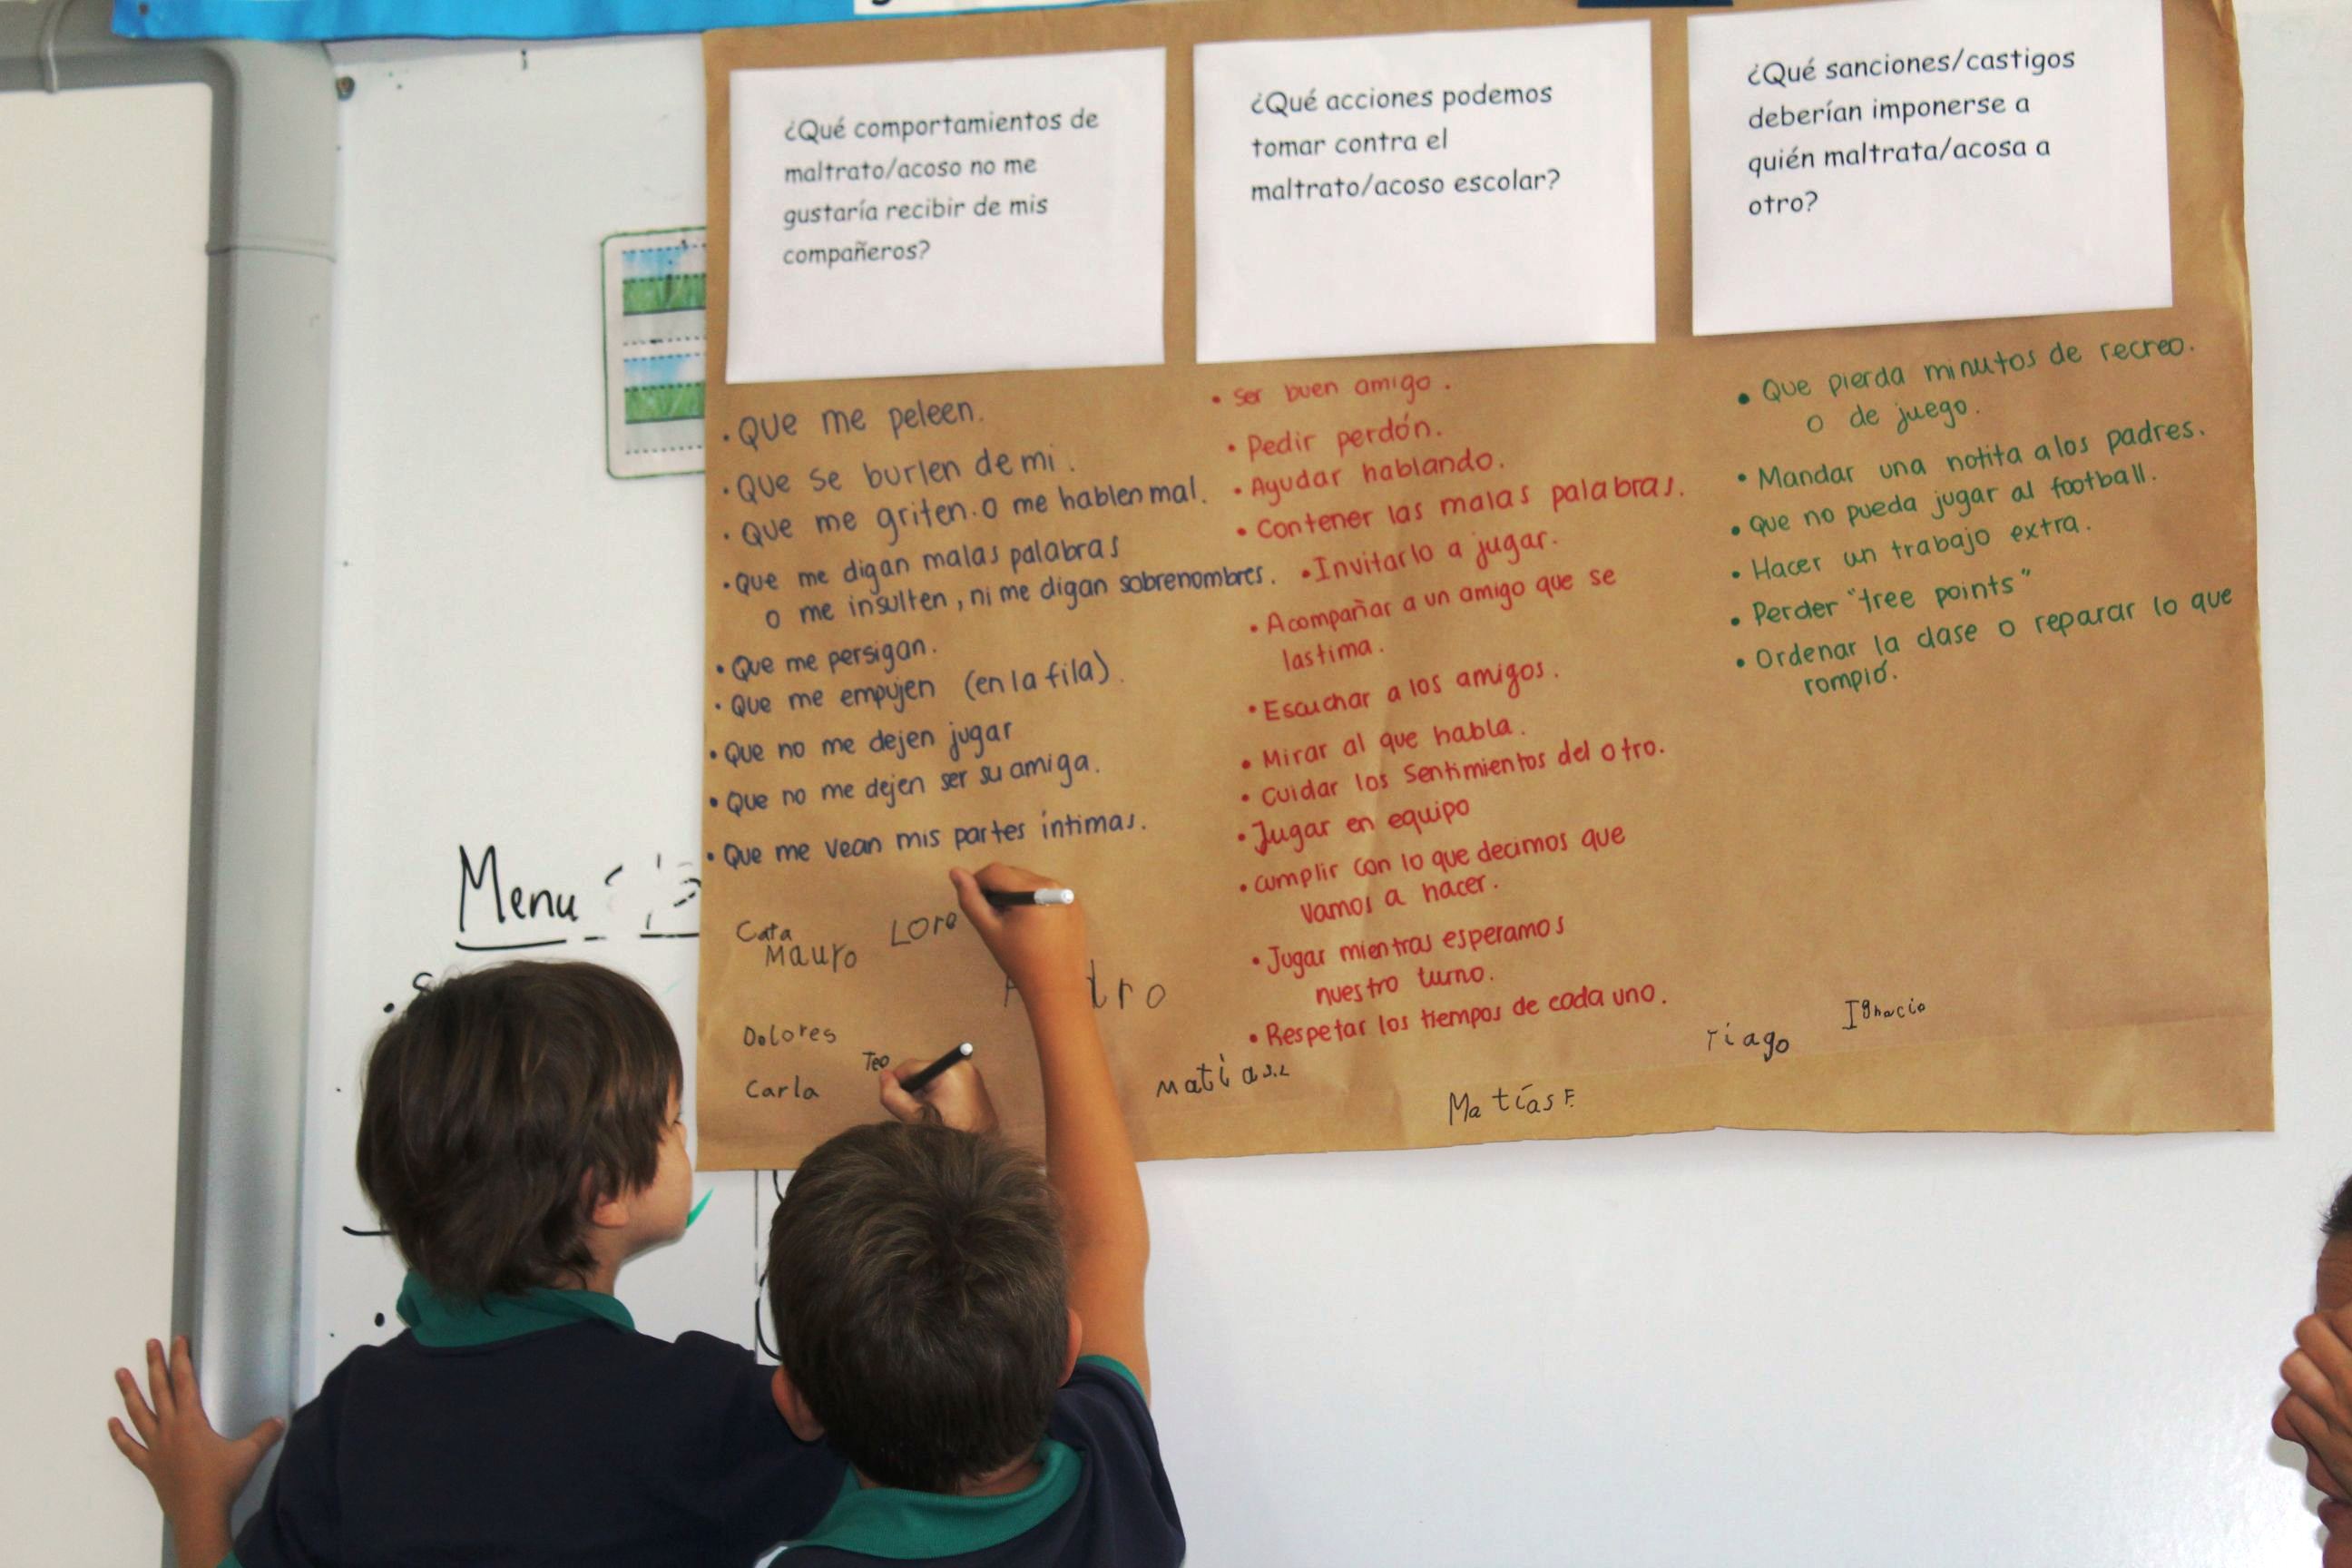 ¿Qué comportamientos de
maltrato/acoso no me
gustaría recibir de mis
compañeros?
• Que me peleen.
• Que se burlen de mi.
• Que me griten. o me hablen mal.
• Que me digan malas palabras
o me insulten, ni me digan sobrenombres.
• Que me persigan.
• Que me empujen (en la fila).
• Que no me dejen jugar
• Que no me dejen ser su amiga.
• Que me vean mis partes íntimas.
¿Qué acciones podemos
tomar contra el
maltrato/acoso escolar?
• Ser buen amigo.
• Pedir perdón.
• Ayudar hablando.
• Contener las malas palabras.
• Invitarlo a jugar.
• Acompañar a un amigo que se
lastima.
• Escuchar a los amigos.
• Mirar al que habla.
• Cuidar los Sentimientos del otro.
• Jugar en equipo
• Cumplir con lo que decimos que
vamos a hacer.
• Jugar mientras esperamos
nuestro turno.
• Respetar los tiempos de cada uno.
¿Qué sanciones/castigos
deberían imponerse a
quién maltrata/acosa a
otro?
• Que pierda minutos de recreo.
o de juego.
• Mandar una notita a los padres.
• Que no pueda jugar al football.
• Hacer un trabajo extra.
• Perder "tree points"
• Ordenar la clase o reparar lo que
rompió.
Menu
Cata
Mauro
Lore
Dolores
Teo
Carla
Matias.L
Matías F.
Tiago
Ignacio